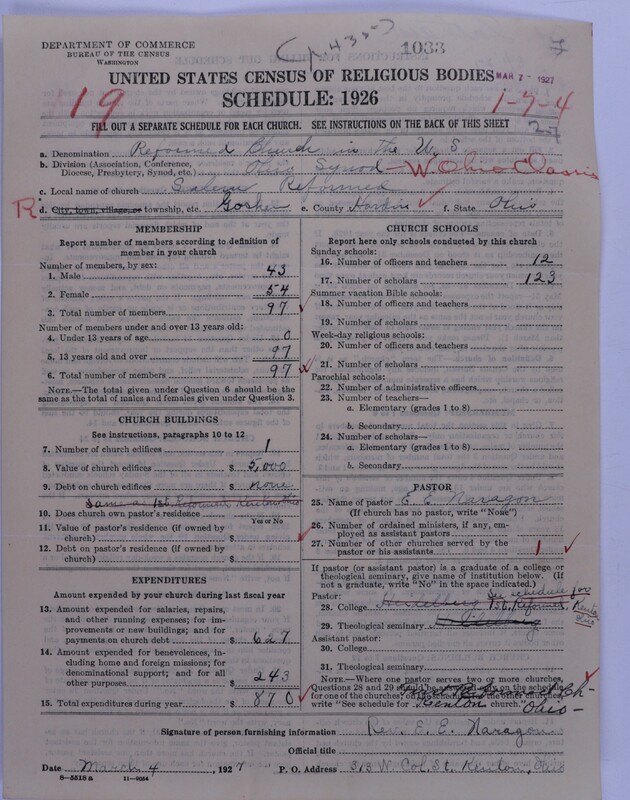 DEPARTMENT OF COMMERCE
BUREAU OF THE CENSUS
WASHINGTON
(p. 435)
1033
UNITED STATES CENSUS OF RELIGIOUS BODIES
MAR 7 - 1927
19
SCHEDULE: 1926
1-7-4
FILL OUT A SEPARATE SCHEDULE FOR EACH CHURCH. SEE INSTRUCTIONS ON THE BACK OF THIS SHEET
27
a. Denomination Reformed Church in The U.S.
b. Division (Association, Conference, Diocese, Presbytery, Synod, etc.) Ohio Synod - W. Ohio Classis
c. Local name of church Salem Reformed
R d. City, town, village, or township, etc. Goshen e. County Hardin f. State Ohio
MEMBERSHIP
Report number of members according to definition of member in your church
Number of members, by sex:
1. Male 43
2. Female 54
3. Total number of members 97
Number of members under and over 13 years old:
4. Under 13 years of age 0
5. 13 years old and over 97
6. Total number of members 97
NOTE.—The total given under Question 6 should be the same as the total of males and females given under Question 3.
CHURCH BUILDINGS
See instructions, paragraphs 10 to 12
7. Number of church edifices 1
8. Value of church edifices $ 5,000
9. Debt on church edifices $ none
Same as 1st. Reformed Kenton Ohio
10. Does church own pastor's residence?
Yes or No
11. Value of pastor's residence (if owned by church) $
12. Debt on pastor's residence (if owned by church) $
EXPENDITURES
Amount expended by your church during last fiscal year
13. Amount expended for salaries, repairs, and other running expenses; for improvements or new buildings; and for payments on church debt $ 627
14. Amount expended for benevolences, including home and foreign missions; for denominational support; and for all other purposes $ 243
15. Total expenditures during year $ 870
CHURCH SCHOOLS
Report here only schools conducted by this church
Sunday schools:
16. Number of officers and teachers 12
17. Number of scholars 123
Summer vacation Bible schools:
18. Number of officers and teachers
19. Number of scholars
Week-day religious schools:
20. Number of officers and teachers
21. Number of scholars
Parochial schools:
22. Number of administrative officers
23. Number of teachers—
a. Elementary (grades 1 to 8)
b. Secondary
24. Number of scholars—
a. Elementary (grades 1 to 8)
b. Secondary
PASTOR
25. Name of pastor E. E. Naragon
(If church has no pastor, write "None")
26. Number of ordained ministers, if any, employed as assistant pastors
27. Number of other churches served by the pastor or his assistants 1
If pastor (or assistant pastor) is a graduate of a college or theological seminary, give name of institution below. (If not a graduate, write "No" in the space indicated.)
Pastor: See schedule for
28. College Heidelberg 1st. Reformed Kenton Ohio
29. Theological seminary
Assistant pastor:
30. College
31. Theological seminary
NOTE.—Where one pastor serves two or more churches, Questions 28 and 29 should be answered only on the schedule for one of the churches; on the schedules for the other churches write "See schedule for Kenton church." Ohio-
Signature of person furnishing information Rev. E. E. Naragon
Official title
Date March 4, 1927 P. O. Address 313 W. Col. St. Kenton, Ohio
8—5518a 11—9054